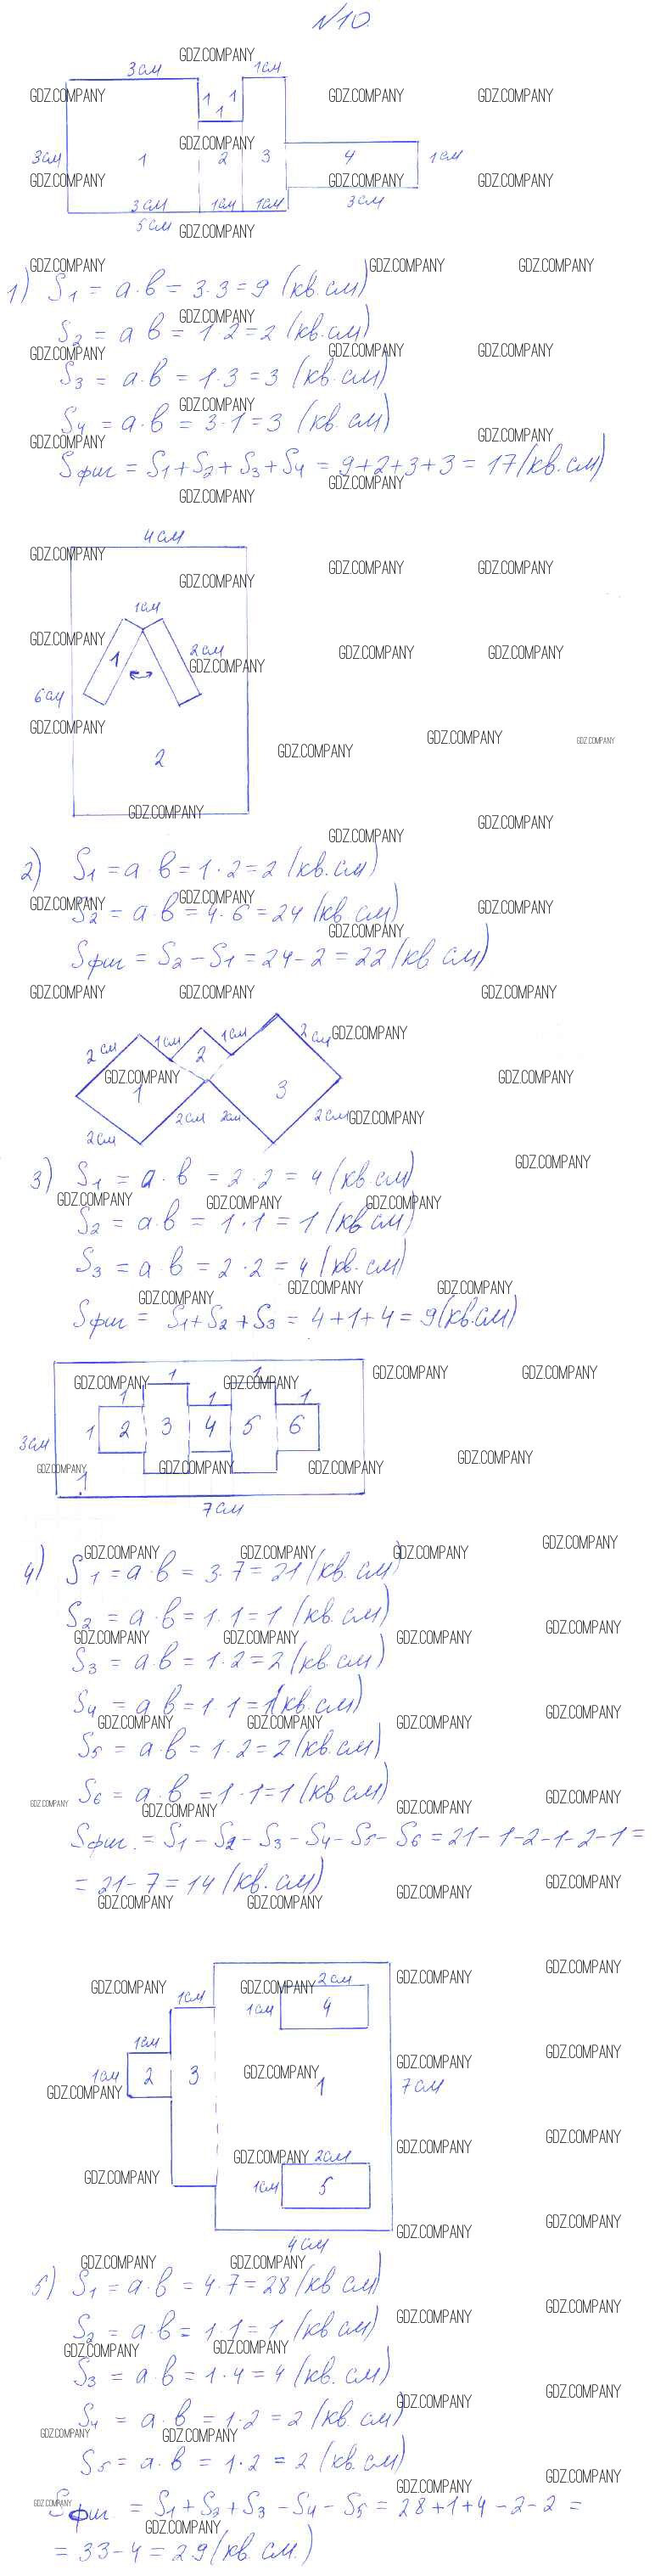 №10.
3см 1см
1 1
1
3см 1 2 3 4 1см
3см 1см 1см 3см
5см
1) S1 = a·в = 3·3 = 9 (кв.см)
S2 = a в = 1·2 = 2 (кв.см)
S3 = a·в = 1·3 = 3 (кв.см)
S4 = a·в = 3·1 = 3 (кв.см)
Sфиг = S1 + S2 + S3 + S4 = 9+2+3+3 = 17 (кв.см)
4см
1см
1 2см
6см
2
2) S1 = a·в = 1·2 = 2 (кв.см)
S2 = a·в = 4·6 = 24 (кв см)
Sфиг = S2 – S1 = 24 – 2 = 22 (кв см)
2см 1см 2 1см 2см
1 3
2см 2см 2см 2см
3) S1 = a·в = 2·2 = 4 (кв.см)
S2 = a·в = 1·1 = 1 (кв см)
S3 = a·в = 2·2 = 4 (кв.см)
Sфиг = S1 + S2 + S3 = 4+1+4 = 9 (кв.см)
1 1
1 1 1
3см 1 2 3 4 5 6
1
7см
4) S1 = a·в = 3·7 = 21 (кв.см)
S2 = a·в = 1·1 = 1 (кв.см)
S3 = a·в = 1·2 = 2 (кв.см)
S4 = a в = 1·1 = 1 (кв.см)
S5 = a·в = 1·2 = 2 (кв.см)
S6 = a·в = 1·1 = 1 (кв см)
Sфиг. = S1 – S2 – S3 – S4 – S5 – S6 = 21 – 1 – 2 – 1 – 2 – 1 =
= 21 – 7 = 14 (кв.см)
2см
1см 1см 4
1см
1см 2 3 1 7см
2см
1см 5
4см
5) S1 = a·в = 4·7 = 28 (кв см)
S2 = a·в = 1·1 = 1 (кв см)
S3 = a·в = 1·4 = 4 (кв.см)
S4 = a·в = 1·2 = 2 (кв.см)
S5 = a·в = 1·2 = 2 (кв.см)
Sфиг = S1 + S2 + S3 – S4 – S5 = 28+1+4 – 2 – 2 =
= 33 – 4 = 29 (кв.см.)
GDZ.COMPANY